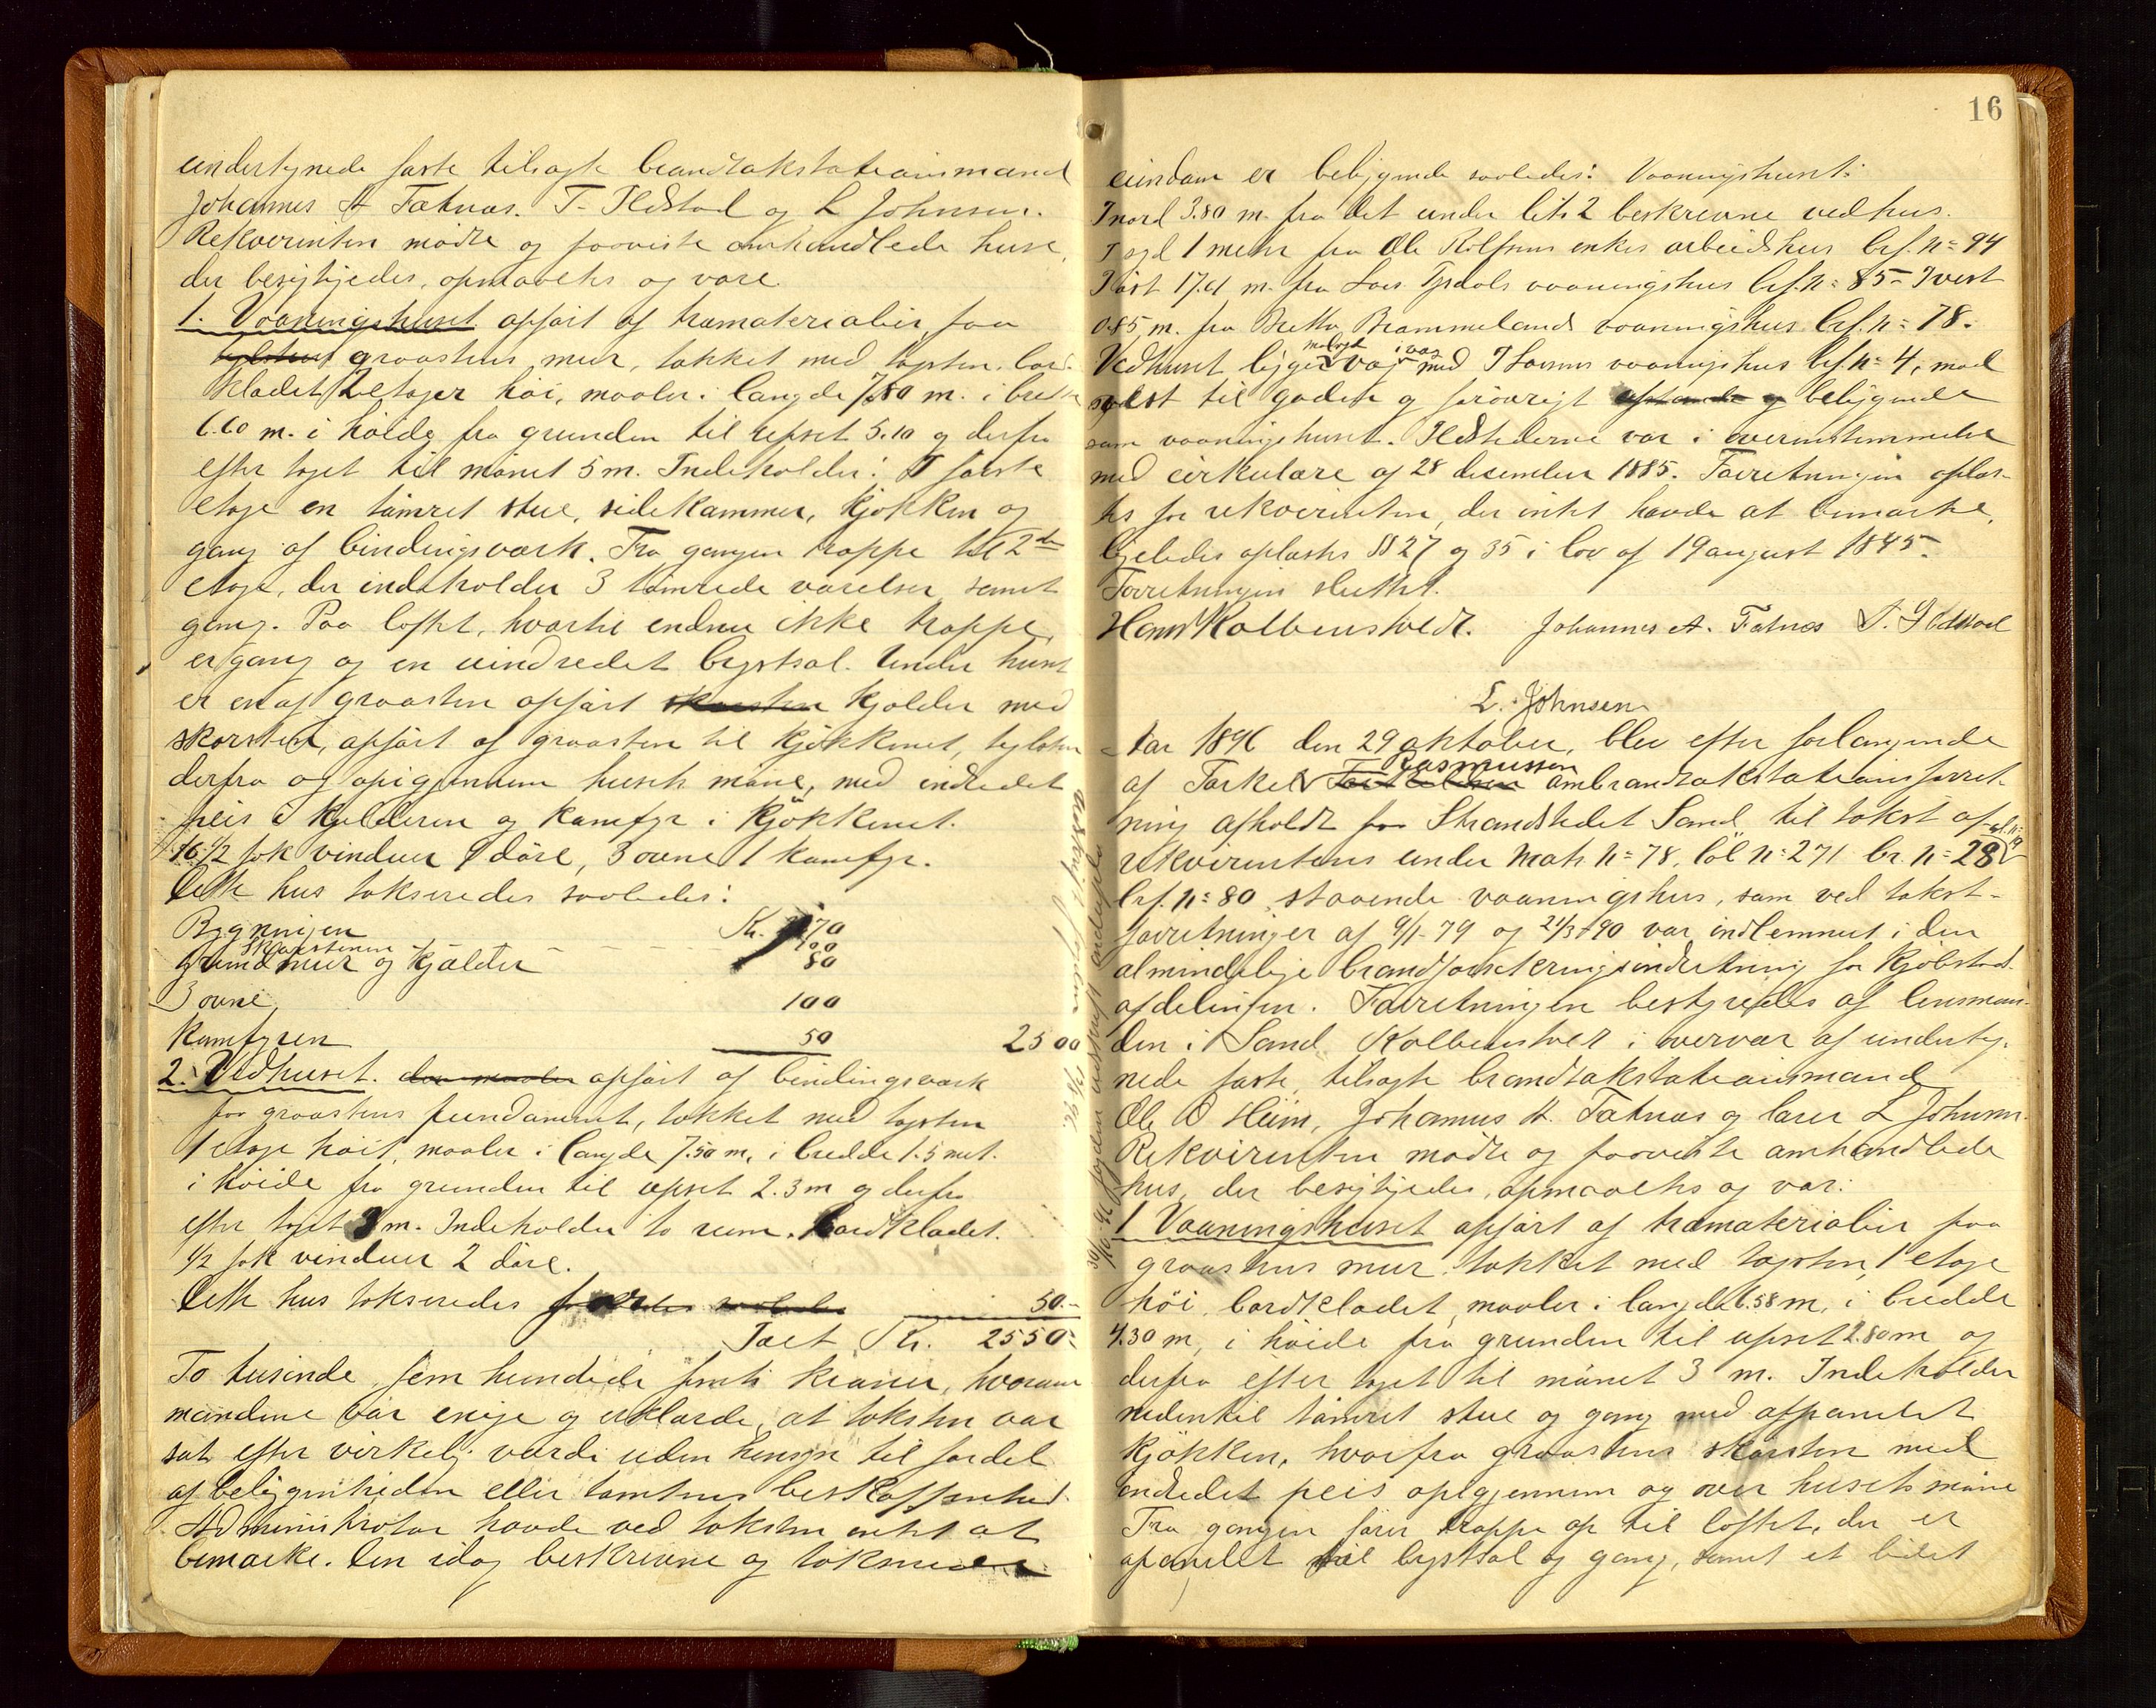 undertegnede faste tilsagte brandtakstationsmænd
Johannes A Fatnæs. T. Ildstad og L Johnsen.
Rekvirenten mødte og paaviste omhandlede huse,
der besigtigedes, opmaaltes og vare.
1. Vaaningshuset opført af træmaterialier paa
graastens mur, tækket med tagsten, bord-
klædet, 2 etager høi, maaler i længde 7.80 m. i bredde
6.60 m. i høide fra grunden til opset 5.10 og derfra
efter taget til mønet 5 m. Indeholder: I første
etage en tømret stue, sidekammer, kjøkken og
gang af bindingsværk. Fra gangen trappe til 2den
etage, der indeholder 3 tømrede værelser samt
gang. Paa loftet, hvortil endnu ikke trappe,
er gang og en uindredet bygstsal. Under huset
er en af graasten opført skorsten kjælder med
skorsten, opført af graasten til kjøkkenet, teglsten
derfra og opigjennem husets møne, med indredet
peis i kjelderen og kamfyr i kjøkkenet.
16 1/2 fok vinduer 9 døre, 3 ovne 1 kamfyr.
Dette hus takseredes saaledes:
Bygningen Kr. 70
Skorstenen 100
Grundmur og kjælder 80
3 ovne 100
Kamfyren 50 2500
2. Vedhuset. den maaler opført af bindingsværk
paa graastens fundament, tækket med tagsten
1 etage høit, maaler i længde 7.50 m, i bredde 1.5 met.
i høide fra grunden til opset 2.3 m og derfra
efter taget 3 m. Indeholder to rum. Bordklædet.
1/2 fok vinduer 2 døre.
Dette hus takseredes for saaledes 50.-
Talt Kr. 2550.-
To tusinde, fem hundrede femti kroner, hvorom
mændene var enige og erklærede, at taksten var
sat efter virkelig værdi uden hensyn til fordel
af beliggenheden eller tomtens beskaffenhed.
Administrator havde ved taksten intet at
bemærke. Den idag beskrevne og takserede
16
eiendom er beliggende saaledes: Vaaningshuset:
I nord 3.80 m. fra det under litr 2 beskrevne vedhus.
I syd 1 meter fra Ole Rolfsens enkes arbeidshus brf. no 94
I øst 17.4 m. fra Lars Tjedals vaaningshus brf. no 85 - I vest
0.85 m. fra Bertha Brommelands vaaningshus brf. no 78.
Vedhuset ligger væg i væg med I Larsens vaaningshus brf. no 4, mod
sydøst til gaden og forøvrigt beliggende
som vaaningshuset. Ildstederne var i overenstemmelse
med cirkulære af 28 desember 1885. Forretningen oplæs-
tes for rekvirenten, der intet havde at bemærke,
ligeledes oplæstes §§ 27 og 35 i lov af 19 august 1845.
Forretningen sluttet.
Hans Kolbenstvedt. Johannes A. Fatnes T. Ildstad
L. Johnsen
Aar 1896 den 29 oktober, blev efter forlangende
af Torkel Rasmussen ombrandtakstationsforret-
ning afholdt paa Strandstedet Sand til takst af
rekvirentens under Matr. no 78, løb no 271 br. no 28
brf. no 80 staaende vaaningshus, som ved takst-
forretninger af 9/1-79 og 21/3-90 var indlemmet i den
almindelige brandforsikringsindretning for kjøbstad-
afdelingen. Forretningen bestyredes af lensman-
den i Sand Kolbenstvedt i overvær af underteg-
nede faste, tilsagte brandtakstationsmænd
Ole O Heim, Johannes A. Fatnæs og lærer L Johnsen.
Rekvirenten mødte og paaviste omhandlede
hus, der besigtigedes, opmaaltes og var:
1 Vaaningshuset opført af træmaterialier paa
graastens mur, tækket med tagsten, 1 etage
høi, bordklædet, maaler i længde 6.58 m, i bredde
4.30 m, i høide fra grunden til opset 2.80 m og
derfra efter taget til mønet 3 m. Indeholder
nedentil tømret stue og gang med afpanelet
kjøkken, hvorfra graastens skorsten med
indredet peis opigjennem og over husets møne
Fra gangen fører trappe op til loftet, der er
afpanelet til bygstsal og gang, samt et lidet